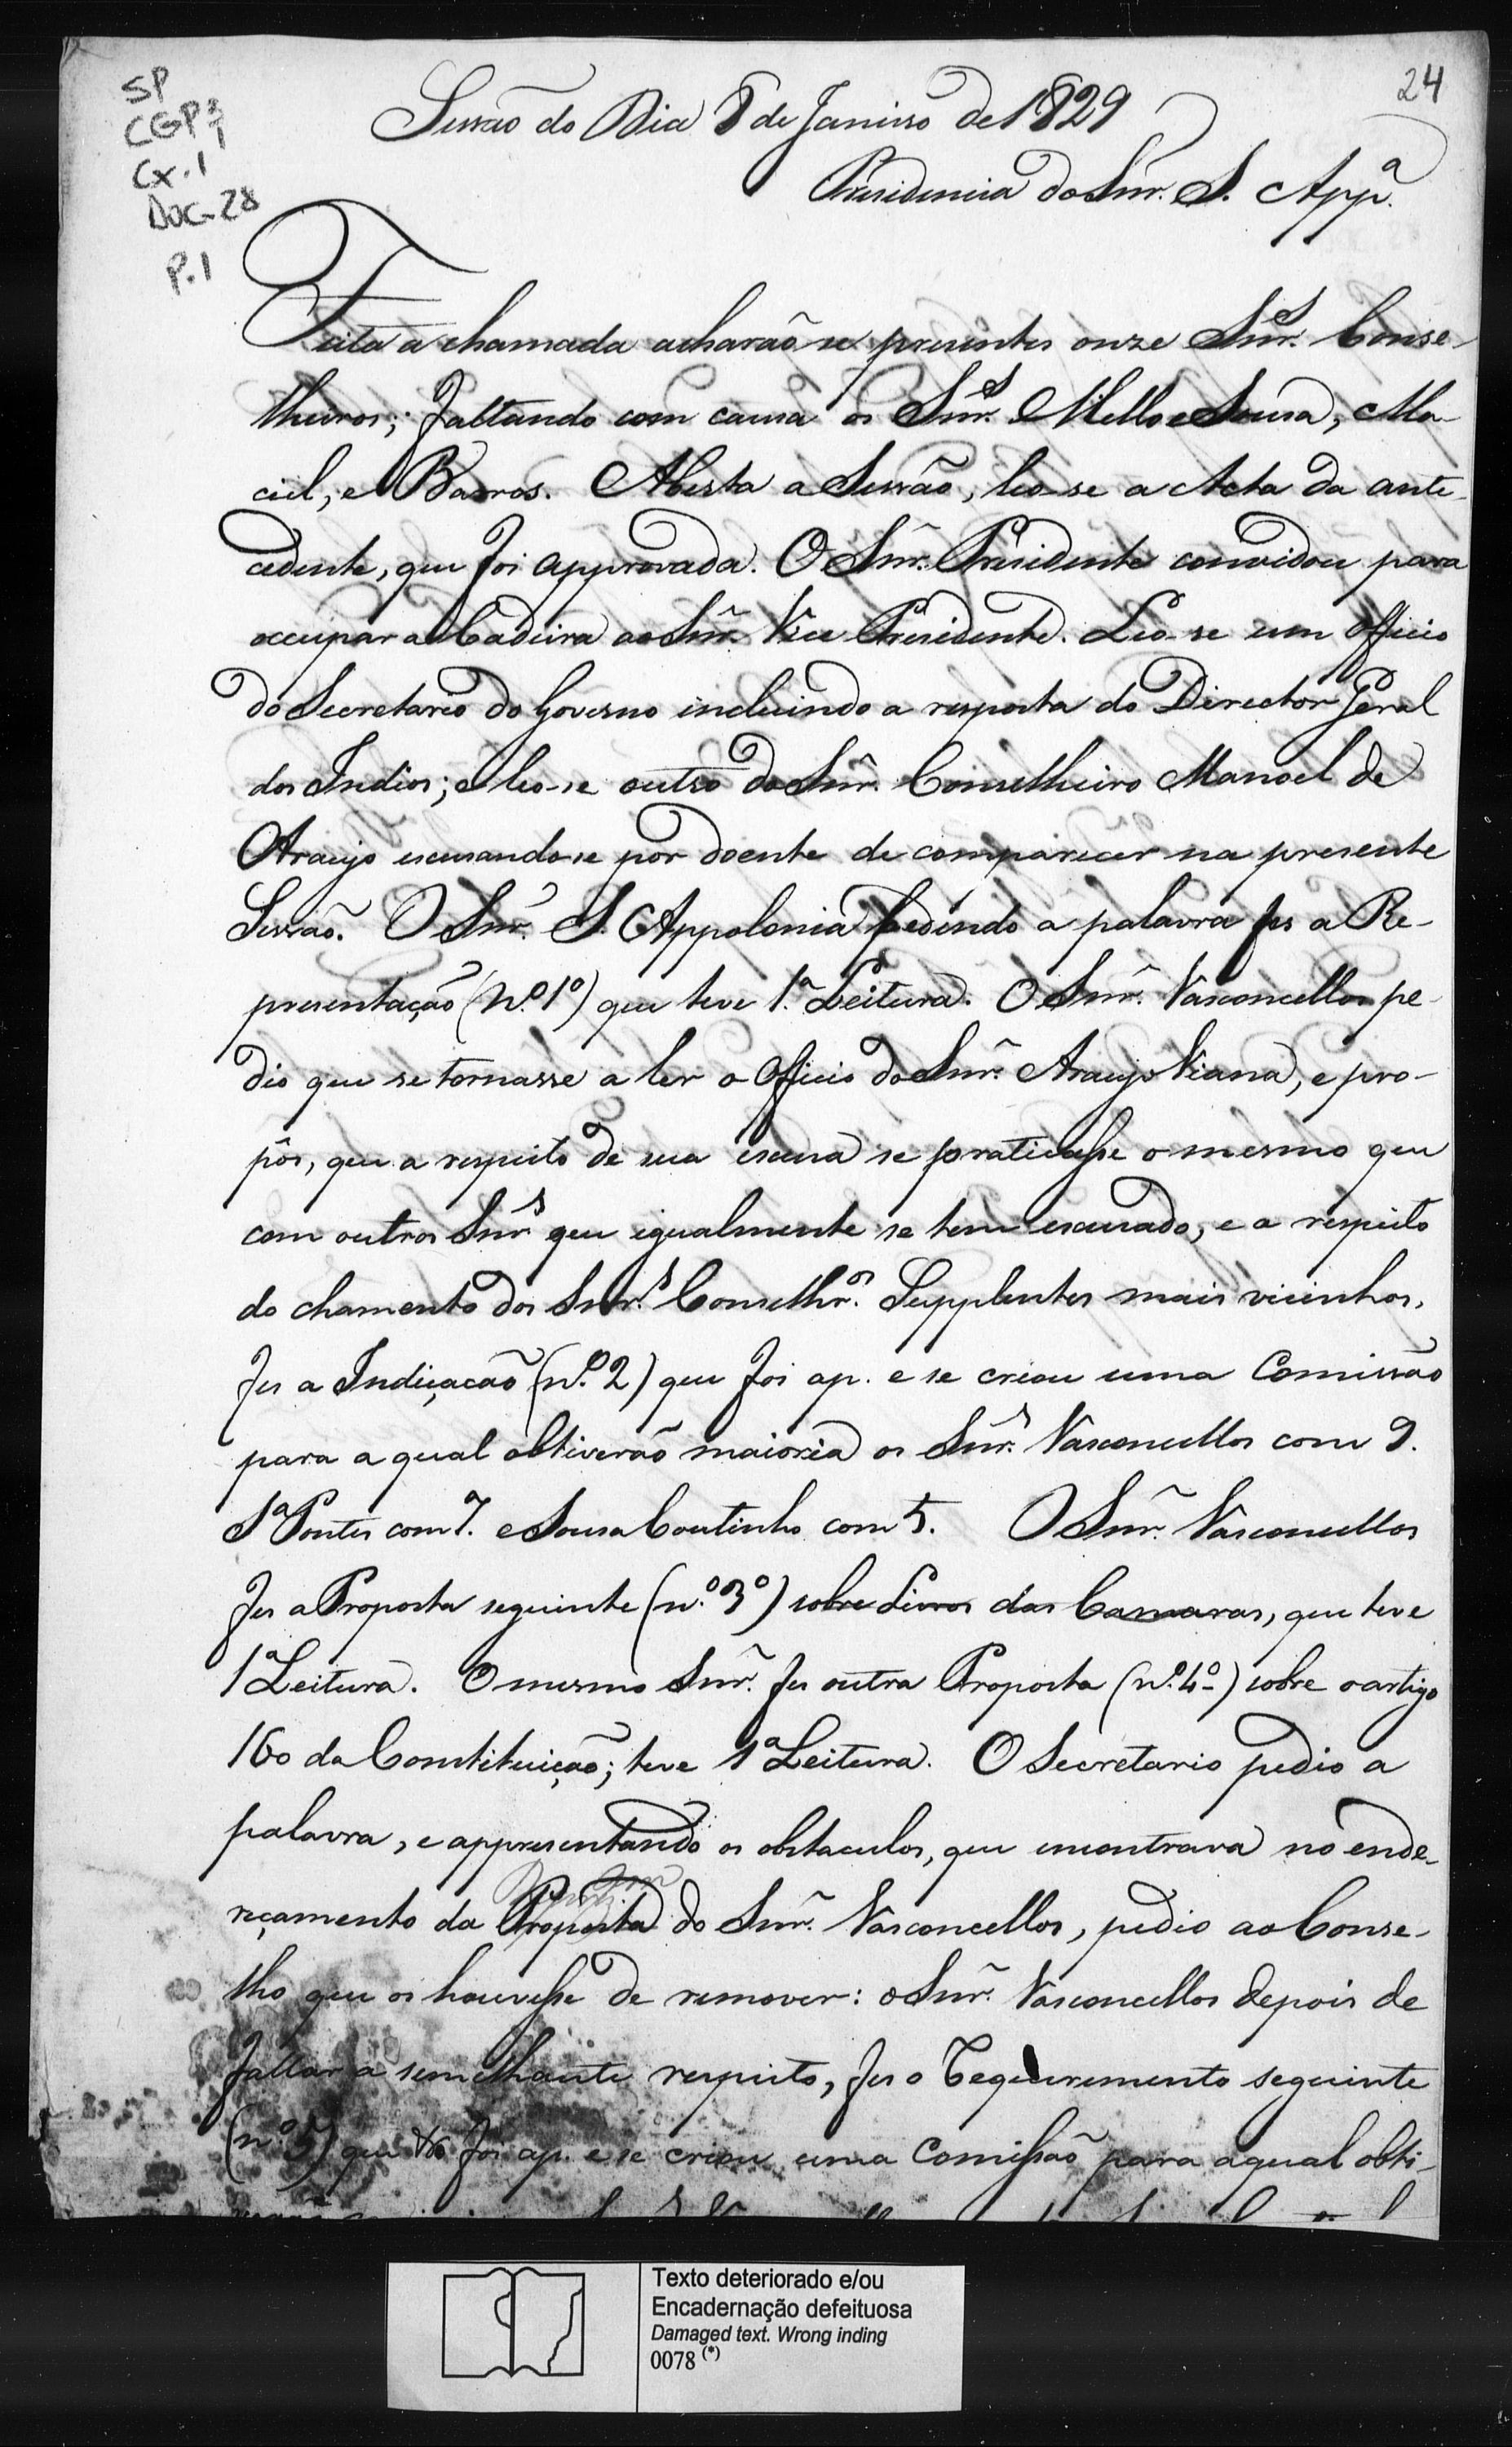 24
SP
CGP:1
Cx. 1
Doc-28
P. 1
Sessão do Dia 8 de Janeiro de 1829
Presidencia do Snr. S. Appª.
Feita a chamada acharão-se presentes onze Snrs. Conse-
lheiros; faltando com causa os Snrs. Mello e Sousa, Ma-
ciel, e Barros. Aberta a Sessão, leo-se a Acta da ante-
cedente, que foi approvada. O Snr. Presidente convidou para
occupar a Cadeira ao Snr. Vice Presidente. Leo-se um Officio
do Secretario do Governo incluindo a resposta do Director Geral
dos Indios; e leo-se outro do Snr. Conselheiro Manoel de
Araujo escusando-se por doente de comparecer na presente
Sessão. O Snr. S. Appolonia pedindo a palavra fes a Re-
presentação (Nº. 1º) que teve 1ª. Leitura. O Snr. Vasconcellos pe-
dio que se tornasse a ler o Officio do Snr. Araujo Viana, e pro-
pôs, que a respeito de sua escusa se praticasse o mesmo que
com outros Snrs que igualmente se tem escusado, e a respeito
do chamento dos Snrs. Conselhros. Supplentes mais visinhos,
fes a Indicação (nº. 2) que foi ap. e se creou uma Comissão
para a qual obtiverão maioria os Snrs. Vasconcellos com 9.
Sª Pontes com 7. e Sousa Coutinho com 5. O Snr. Vasconcellos
fes a Proposta seguinte (n.º 3º) sobre Livros das Camaras, que teve
1ª Leitura. O mesmo Snr. fes outra Proposta (nº. 4º) sobre o artigo
160 da Constituição; teve 1ª Leitura. O Secretario pedio a
palavra, e appresentando os obstaculos, que encontrava no ende-
reçamento da Proposta do Snr. Vasconcellos, pedio ao Conse-
lho que os houvesse de remover: o Snr. Vasconcellos depois de
fallar a semelhante respeito, fes o Requerimento seguinte
(nº 5) que foi ap. e se creou uma Comissão para a qual obti-
Texto deteriorado e/ou
Encadernação defeituosa
Damaged text. Wrong inding
0078 (*)